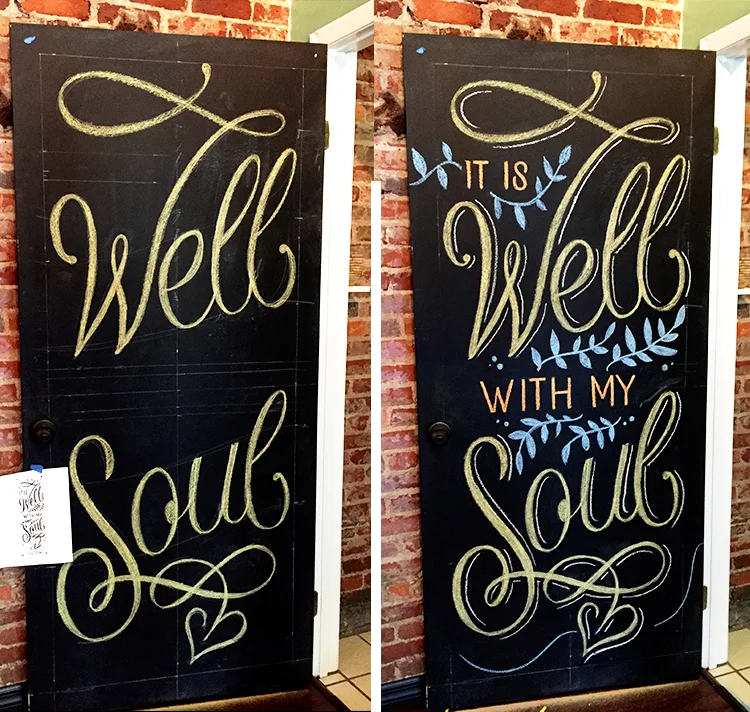 Well
Soul
It is
Well
with my
Soul
IT IS
Well
WITH MY
Soul